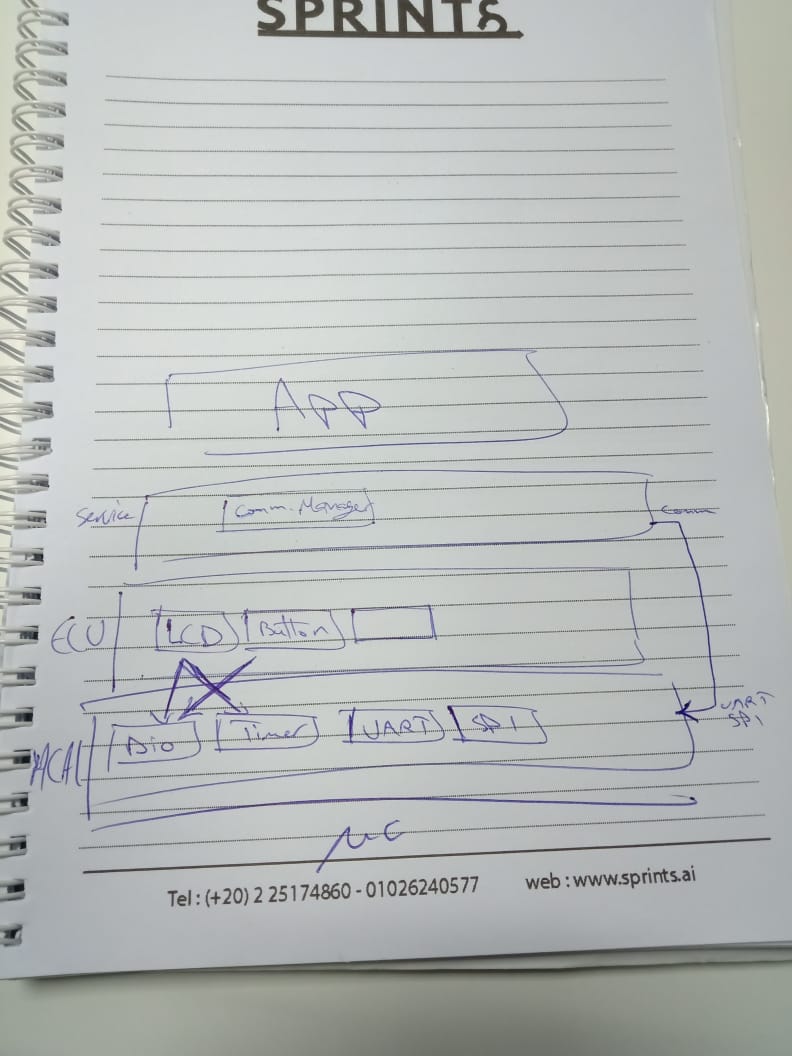 SPRINTS
App
Service Comm. Manager Comm
ECU LCD Button
UART
SPI
MCAL Dio Timer UART SPI
μC
Tel : (+20) 2 25174860 - 01026240577 web : www.sprints.ai